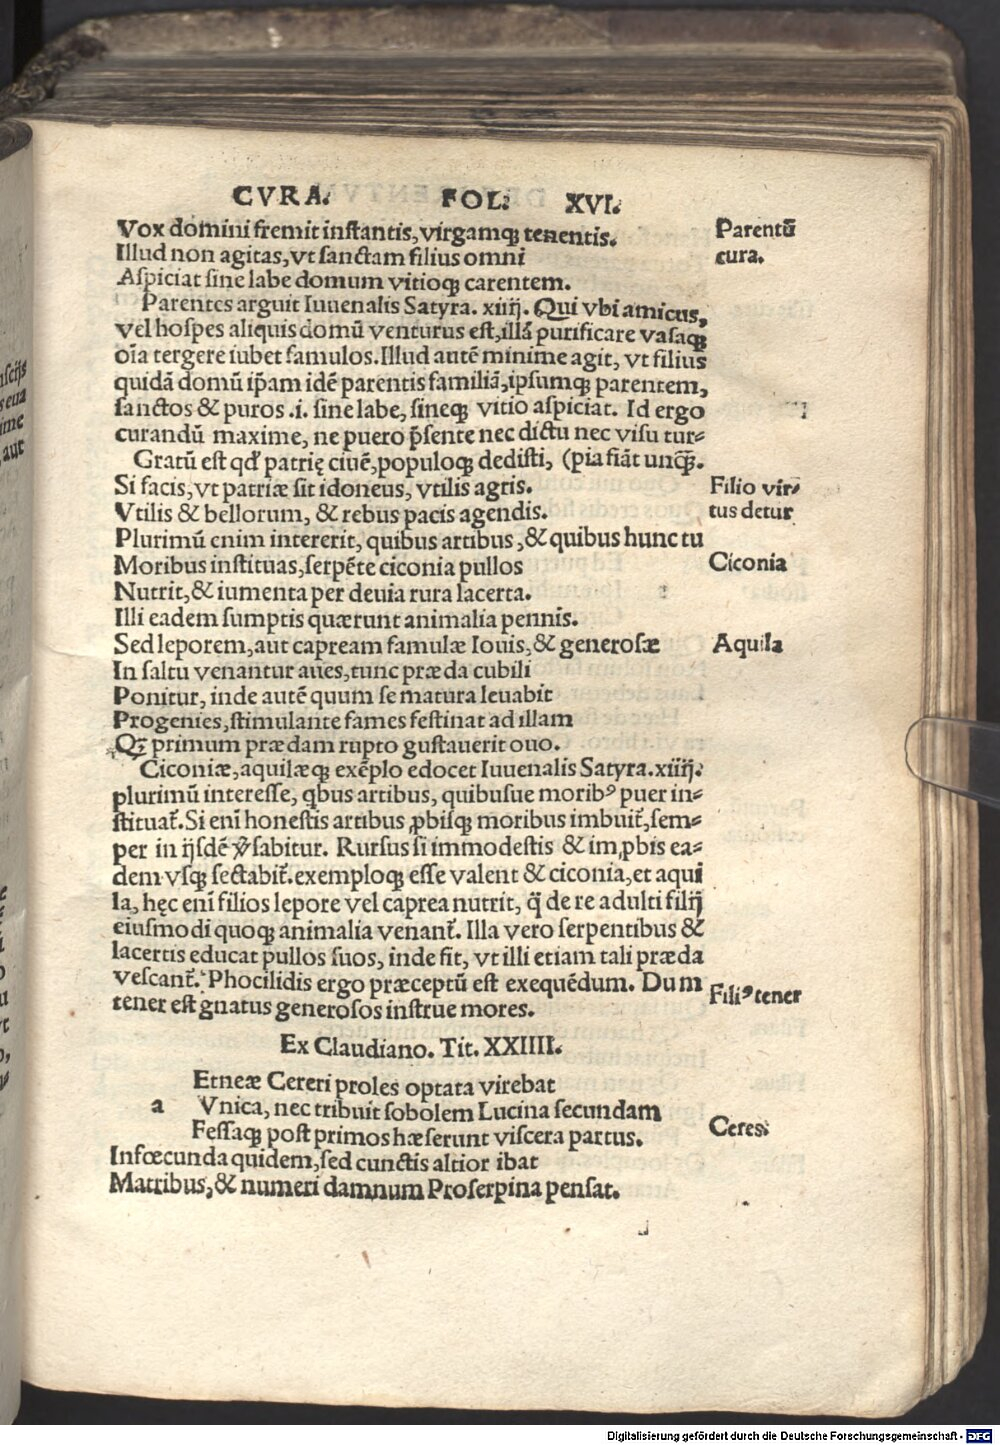 CVRA. FOL. XVI.
Vox domini fremit instantis, virgamqꝫ tenentis.
Parentū
Illud non agitas, vt sanctam filius omni
cura.
Aspiciat sine labe domum vitioqꝫ carentem.
Parentes arguit Iuuenalis Satyra. xiiij. Qui vbi amicus,
vel hospes aliquis domū venturus est, illā purificare vasaqꝫ
oīa tergere iubet famulos. Illud autē minime agit, vt filius
quidā domū ip̄am idē parentis familiā, ipsumqꝫ parentem,
sanctos & puros .i. sine labe, sineqꝫ vitio aspiciat. Id ergo
curandū maxime, ne puero p̄sente nec dictu nec visu tur⸗
Gratū est qđ patrię ciuē, populoqꝫ dedisti, (pia fiāt unqꝫ̄.
Si facis, vt patriæ sit idoneus, vtilis agris.
Filio vir⸗
Vtilis & bellorum, & rebus pacis agendis.
tus detur
Plurimū enim intererit, quibus artibus, & quibus hunc tu
Moribus instituas, serpēte ciconia pullos
Ciconia
Nutrit, & iumenta per deuia rura lacerta.
Illi eadem sumptis quærunt animalia pennis.
Sed leporem, aut capream famulæ Iouis, & generosæ
Aquila
In saltu venantur aues, tunc præda cubili
Ponitur, inde autē quum se matura leuabit
Progenies, stimulante fames festinat ad illam
Qꝫ̄ primum prædam rupto gustauerit ouo.
Ciconiæ, aquilæqꝫ exēplo edocet Iuuenalis Satyra. xiiij.
plurimū interesse, qbus artibus, quibusue moribꝰ puer in⸗
stituat̃. Si eni honestis artibus ꝓbisqꝫ moribus imbuit̃, sem⸗
per in ijsdē v̄sabitur. Rursus si immodestis & imꝓbis ea⸗
dem vsqꝫ sectabit̃. exemploqꝫ esse valent & ciconia, et aqui
la, hęc enī filios lepore vel caprea nutrit, q̄ de re adulti filij
eiusmodi quoqꝫ animalia venant̃. Illa vero serpentibus &
lacertis educat pullos suos, inde fit, vt illi etiam tali præda
vescant̃. Phocilidis ergo præceptū est exequēdum. Dum
Filiꝰ tener
tener est gnatus generosos instrue mores.
Ex Claudiano. Tit. XXIIII.
Etneæ Cereri proles optata virebat
a Vnica, nec tribuit sobolem Lucina secundam
Fessaqꝫ post primos hæserunt viscera partus.
Ceres
Infœcunda quidem, sed cunctis altior ibat
Matribus, & numeri damnum Proserpina pensat.
Digitalisierung gefördert durch die Deutsche Forschungsgemeinschaft - DFG